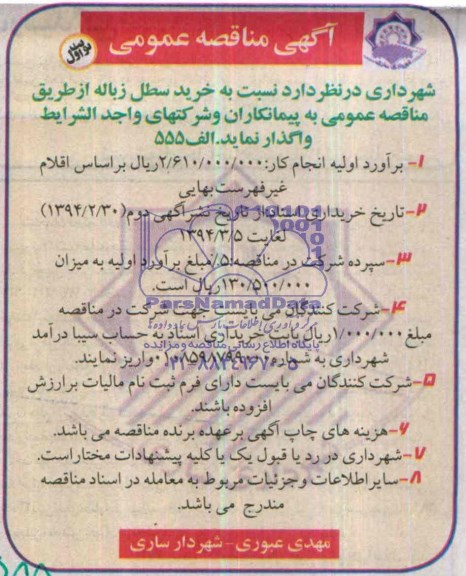 آگهی مناقصه عمومی
نوبت اول
شهرداری درنظردارد نسبت به خرید سطل زباله ازطریق
مناقصه عمومی به پیمانکاران وشرکتهای واجد الشرایط
واگذار نماید.الف۵۵۵
۱- برآورد اولیه انجام کار:۲/۶۱۰/۰۰۰/۰۰۰ریال براساس اقلام
غیرفهرست بهایی
۲-تاریخ خریداری اسناداز تاریخ نشرآگهی دوم(۱۳۹۴/۲/۳۰)
لغایت ۱۳۹۴/۳/۵
۳-سپرده شرکت در مناقصه:۵٪مبلغ برآورد اولیه به میزان
۱۳۰/۵۰۰/۰۰۰ریال است.
ParsNamadData
۴-شرکت کنندگان می بایست جهت شرکت در مناقصه
مبلغ ۱/۰۰۰/۰۰۰ریال بابت خریداری اسناد به حساب سیبا درآمد
پایگاه اطلاع رسانی مناقصه و مزایده
شهرداری به شماره واریز نمایند.
۰۲۱-۸۸۳۴۹۶۷۰-۵
۵-شرکت کنندگان می بایست دارای فرم ثبت نام مالیات برارزش
افزوده باشند.
۶-هزینه های چاپ آگهی برعهده برنده مناقصه می باشد.
۷-شهرداری در رد یا قبول یک یا کلیه پیشنهادات مختاراست.
۸-سایراطلاعات وجزئیات مربوط به معامله در اسناد مناقصه
مندرج می باشد.
مهدی عبوری-شهردار ساری